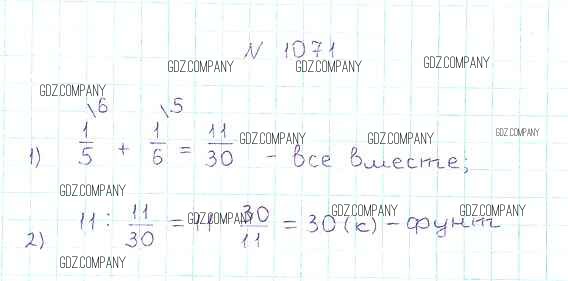 N 1071
GDZ.COMPANY GDZ.COMPANY GDZ.COMPANY
GDZ.COMPANY
\6 \5
1) 1/5 + 1/6 = 11/30 - все вместе;
GDZ.COMPANY GDZ.COMPANY GDZ.COMPANY
GDZ.COMPANY
2) 11 : 11/30 = 11 30/11 = 30 (к) - фунт
GDZ.COMPANY GDZ.COMPANY GDZ.COMPANY
GDZ.COMPANY